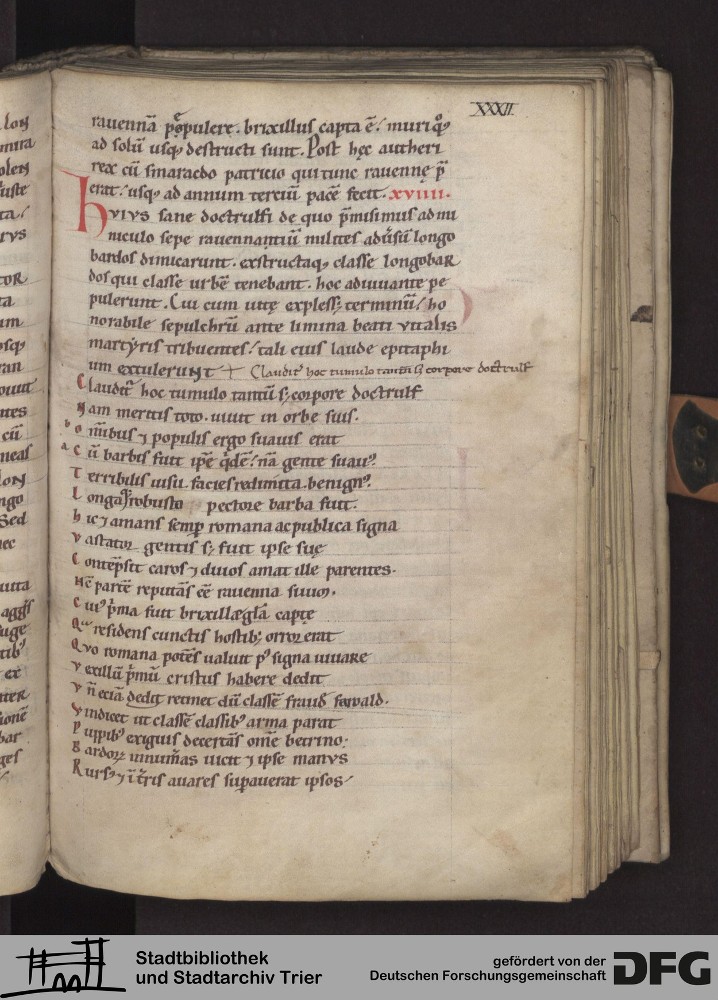 XXXII.
rauennā p̄populerę. brixillus capta ē. muriq̊
ad solū usq; destructi sunt. Post hęc autheri
rex cū smaracdo patricio qui tunc rauennę p̄
erat. usq; ad annum terciū pacē fecit. xviiii.
hvivs sane doctrulfi de quo p̄misimus admi
niculo sepe rauennantiū milites aduʼsū longo
bardos dimicarunt. exstructaq; classe longobar
dos qui classe urbē tenebant. hoc adiuuante pe
pulerunt. Cui cum uitę expless; terminū ho
norabile sepulchrū ante limina beati vitalis
martyris tribuentes. tali eius laude epitaphi
um extulerunt + Clauditʼ hoc tumulo tantū s; corpore doctrulf
Clauditʼ hoc tumulo tantū s; corpore doctrulf
Nam meritis toto. uiuit in orbe suis.
b omībus ⁊ populis ergo suauis erat
a Cū barbis fuit ipse q̇dē. nā gente suauꝰ.
Terribilis uisu. facies redimita. benignꝰ.
Longaq; robusto pectore barba fuit.
hic ⁊ amans semp romana ac publica signa
vastatoꝛ gentis s; fuit ipse suę
Contēpsit caros ⁊ diuos amat ille parentes.
Hāc partē reputās eē rauenna suuꝫ.
Cuiꝰ p̄ma fuit brixillę glā captę
Quʼ residens cunctis hostib; orror erat
Qvo romana potēs ualuit pꝰ signa uiuare
vexillū p̄mū cristus habere dedit
vn̄ eciā dedit retinet dū classē fraud̄ forwald.
vindicet ut classē classibꝰ arma parat
Puppibꝰ exiguis decertās om̄e betrino.
Bardoꝝ uinumas uicit ⁊ ipse manvs
Rursꝰ ⁊ ī tʼris auares supauerat ipsos
Stadtbibliothek
und Stadtarchiv Trier
gefördert von der
Deutschen Forschungsgemeinschaft
DFG